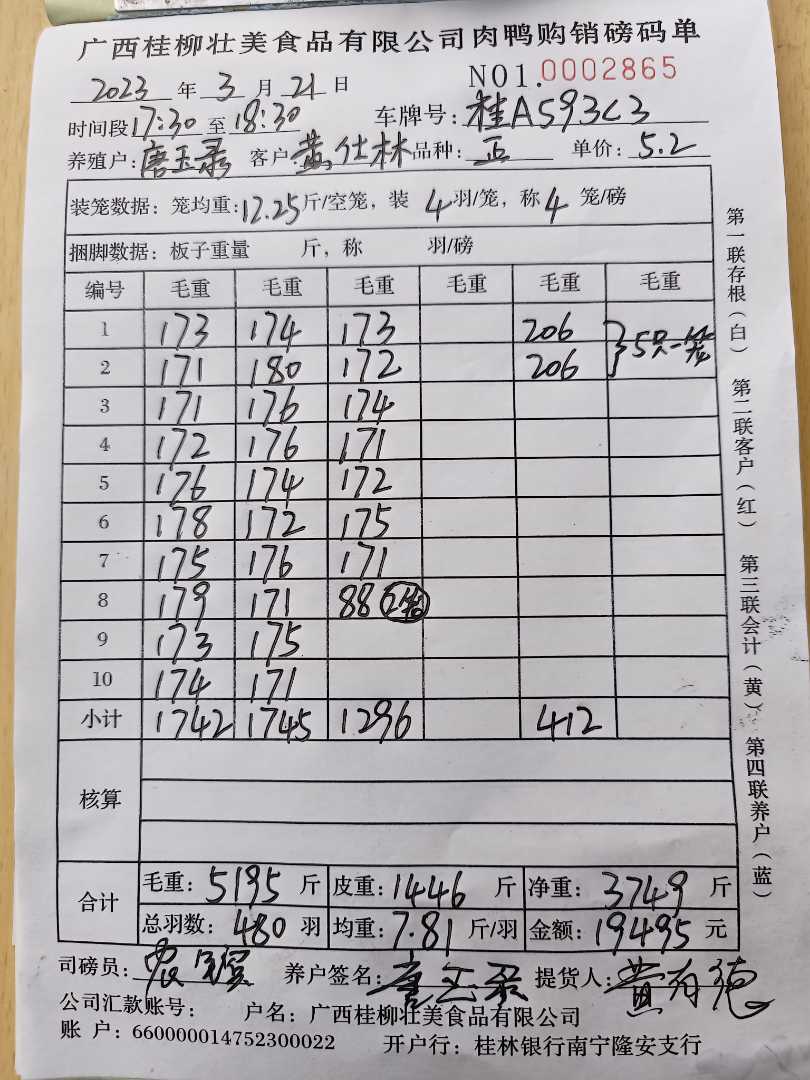 广西桂柳壮美食品有限公司肉鸭购销磅码单
2023 年 3 月 21 日 NO1.0002865
时间段 17:30 至 18:30 车牌号: 桂A593C3
养殖户: 唐玉录 客户 黄仕林 品种: 正 单价: 5.2
装笼数据: 笼均重: 12.25 斤/空笼, 装 4 羽/笼, 称 4 笼/磅
捆脚数据: 板子重量 斤, 称 羽/磅
编号 毛重 毛重 毛重 毛重 毛重 毛重
1 173 174 173 206 }5只一笼
2 171 180 172 206
3 171 176 174
4 172 176 171
5 176 174 172
6 178 172 175
7 175 176 171
8 179 171 88 2笼
9 173 175
10 174 171
小计 1742 1745 1296 412
核算
合计 毛重: 5195 斤 皮重: 1446 斤 净重: 3749 斤
总羽数: 480 羽 均重: 7.81 斤/羽 金额: 19495 元
司磅员: 农 养户签名: 唐玉录 提货人: 黄有德
公司汇款账号: 户名: 广西桂柳壮美食品有限公司
账 户: 660000014752300022 开户行: 桂林银行南宁隆安支行
第一联存根(白) 第二联客户(红) 第三联会计(黄) 第四联养户(蓝)